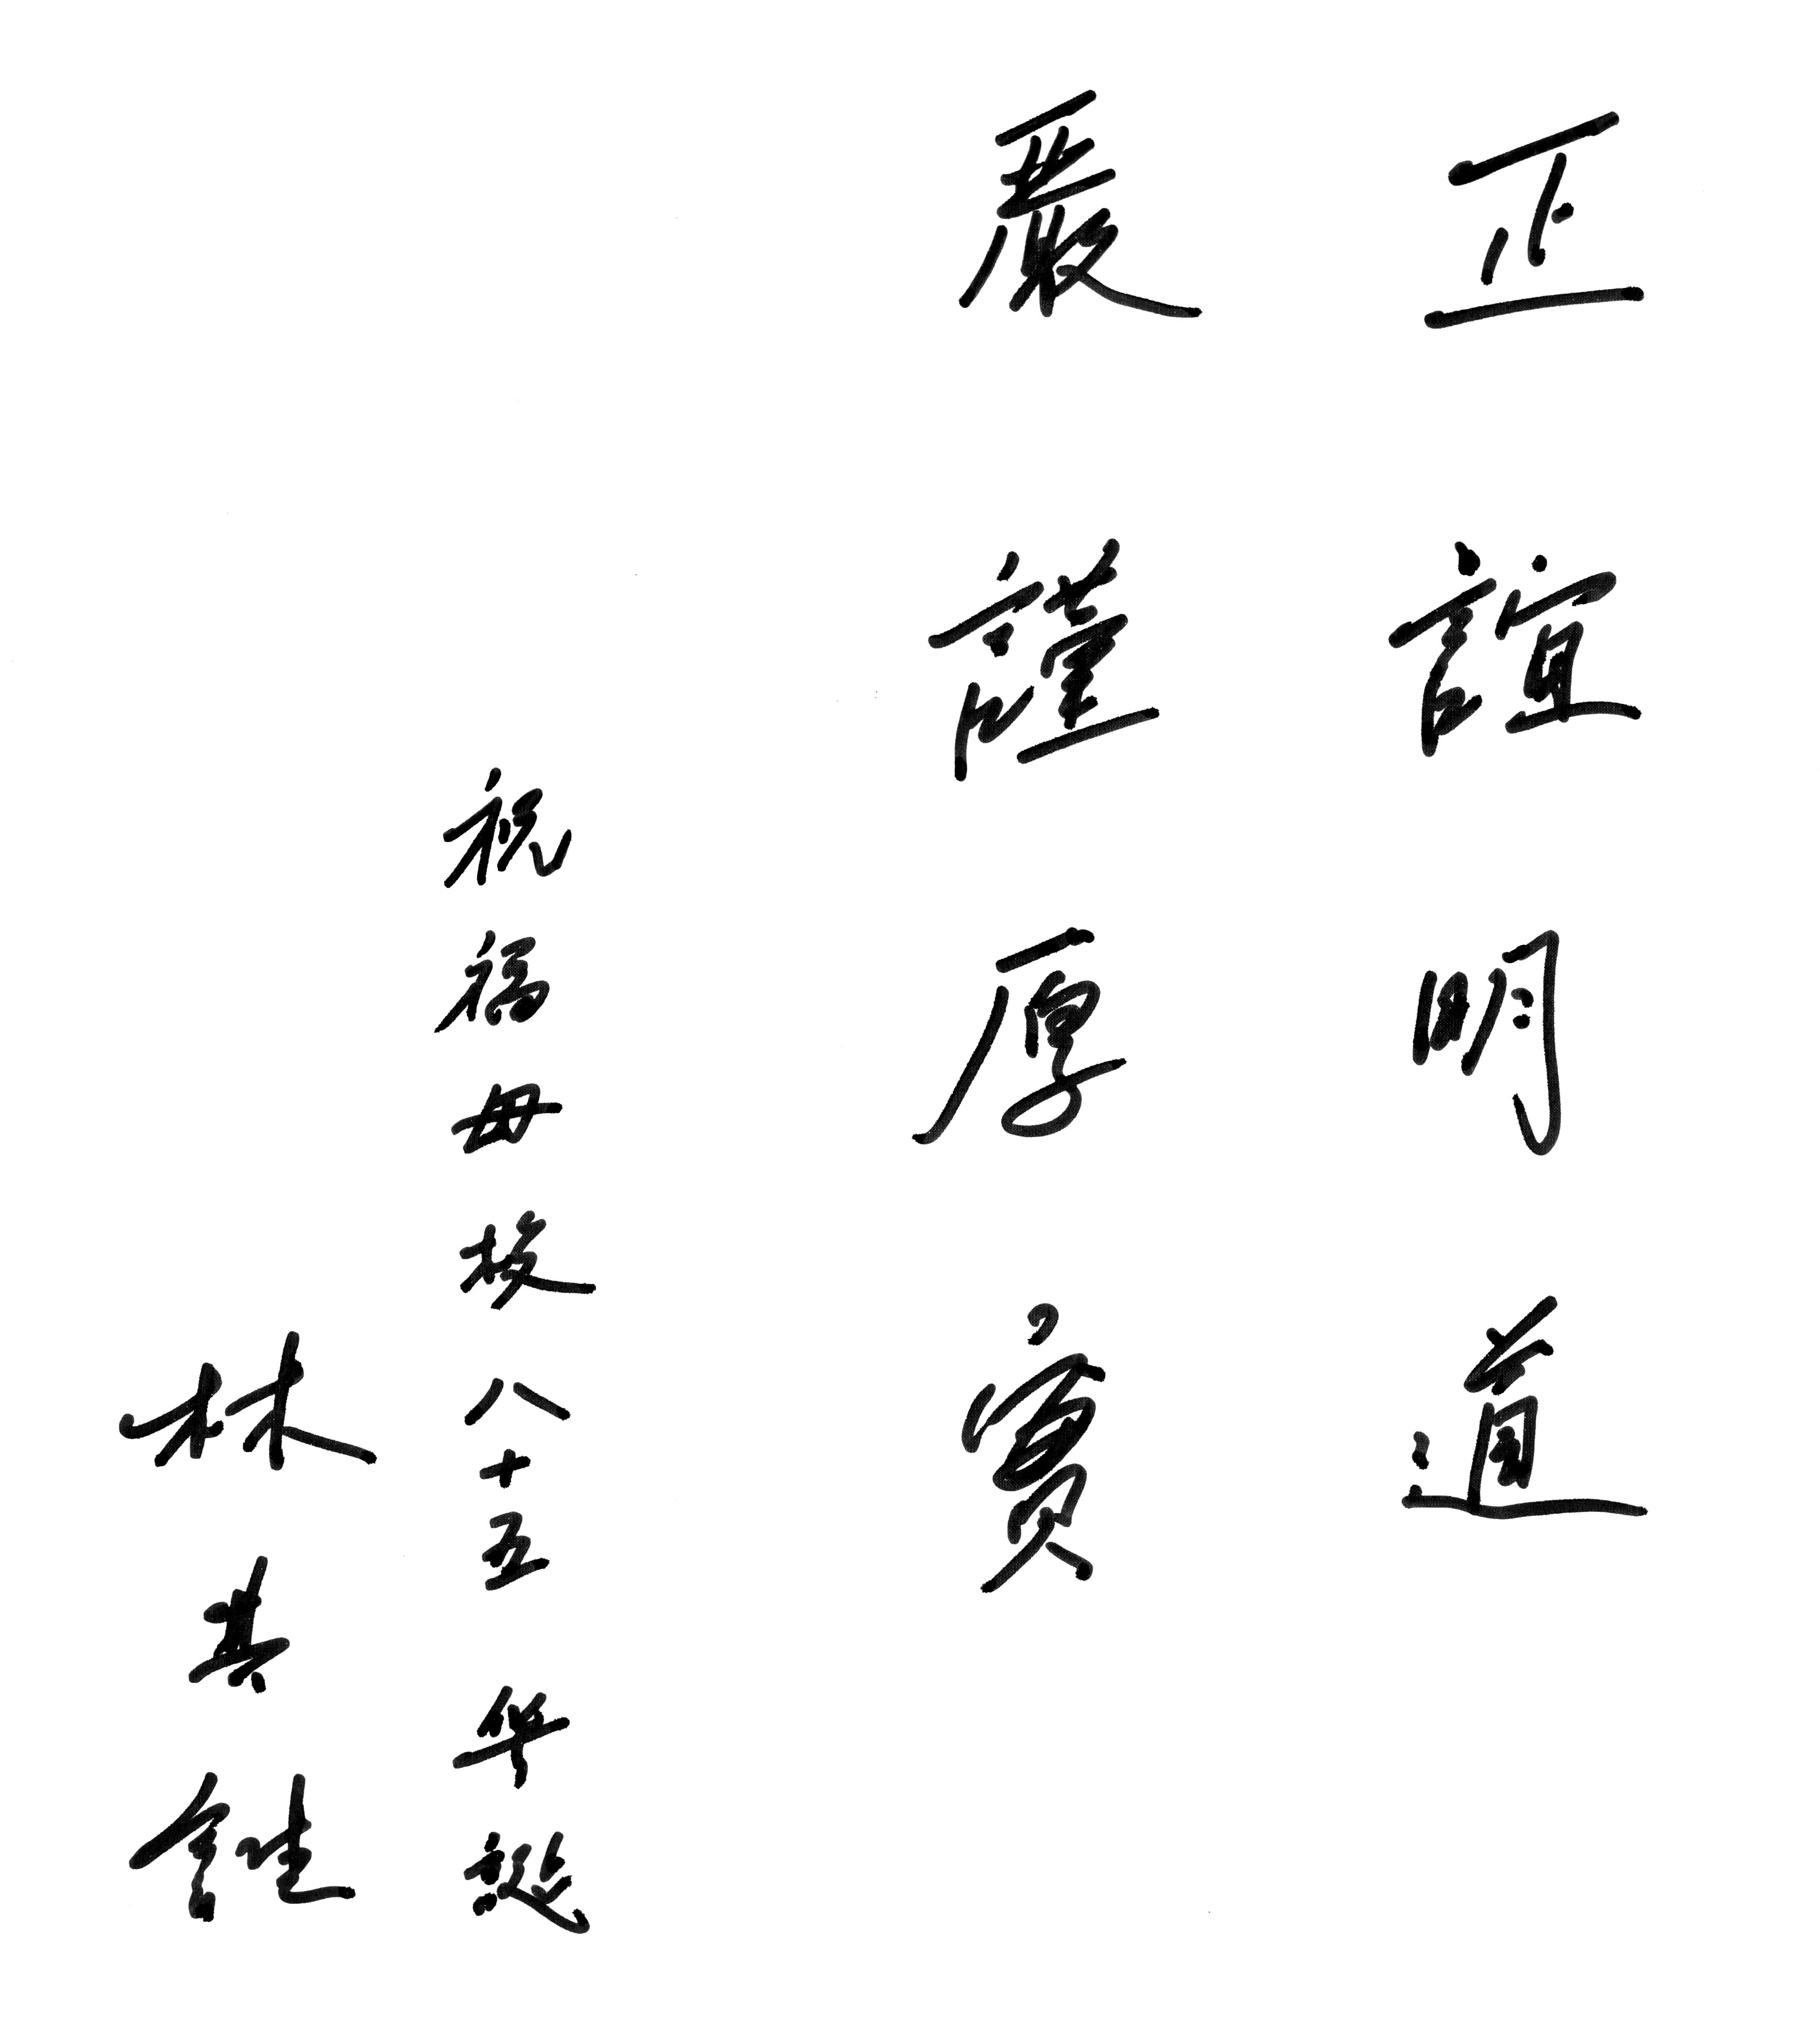 正誼明道
嚴謹厚實
祝福母校八十五华誕
林其